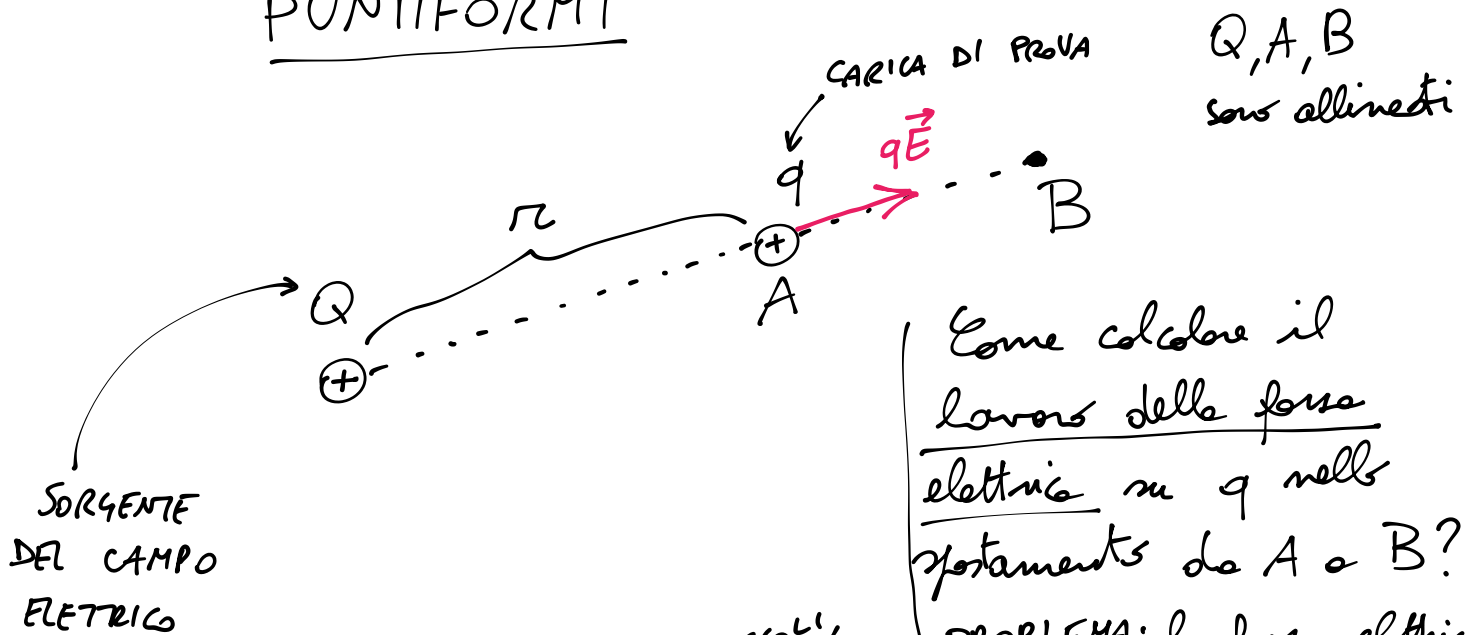 PUNTIFORMI
CARICA DI PROVA
Q, A, B
sono allineati
q
qE⃗
B
r
A
Q
+
+
SORGENTE
DEL CAMPO
ELETTRICO
Come calcolare il
lavoro della forza
elettrica su q nello
spostamento da A a B?
PROBLEMA: la forza elettric